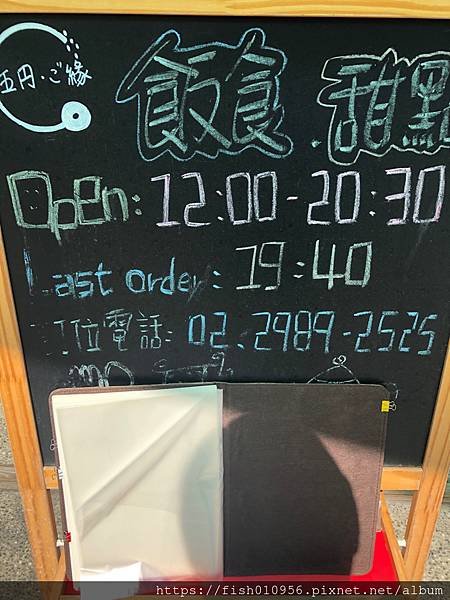 五円・ご緣
飯食・甜點
Open: 12:00-20:30
Last order: 19:40
位電話: 02.2989-2525
https://fish010956.pixnet.net/album